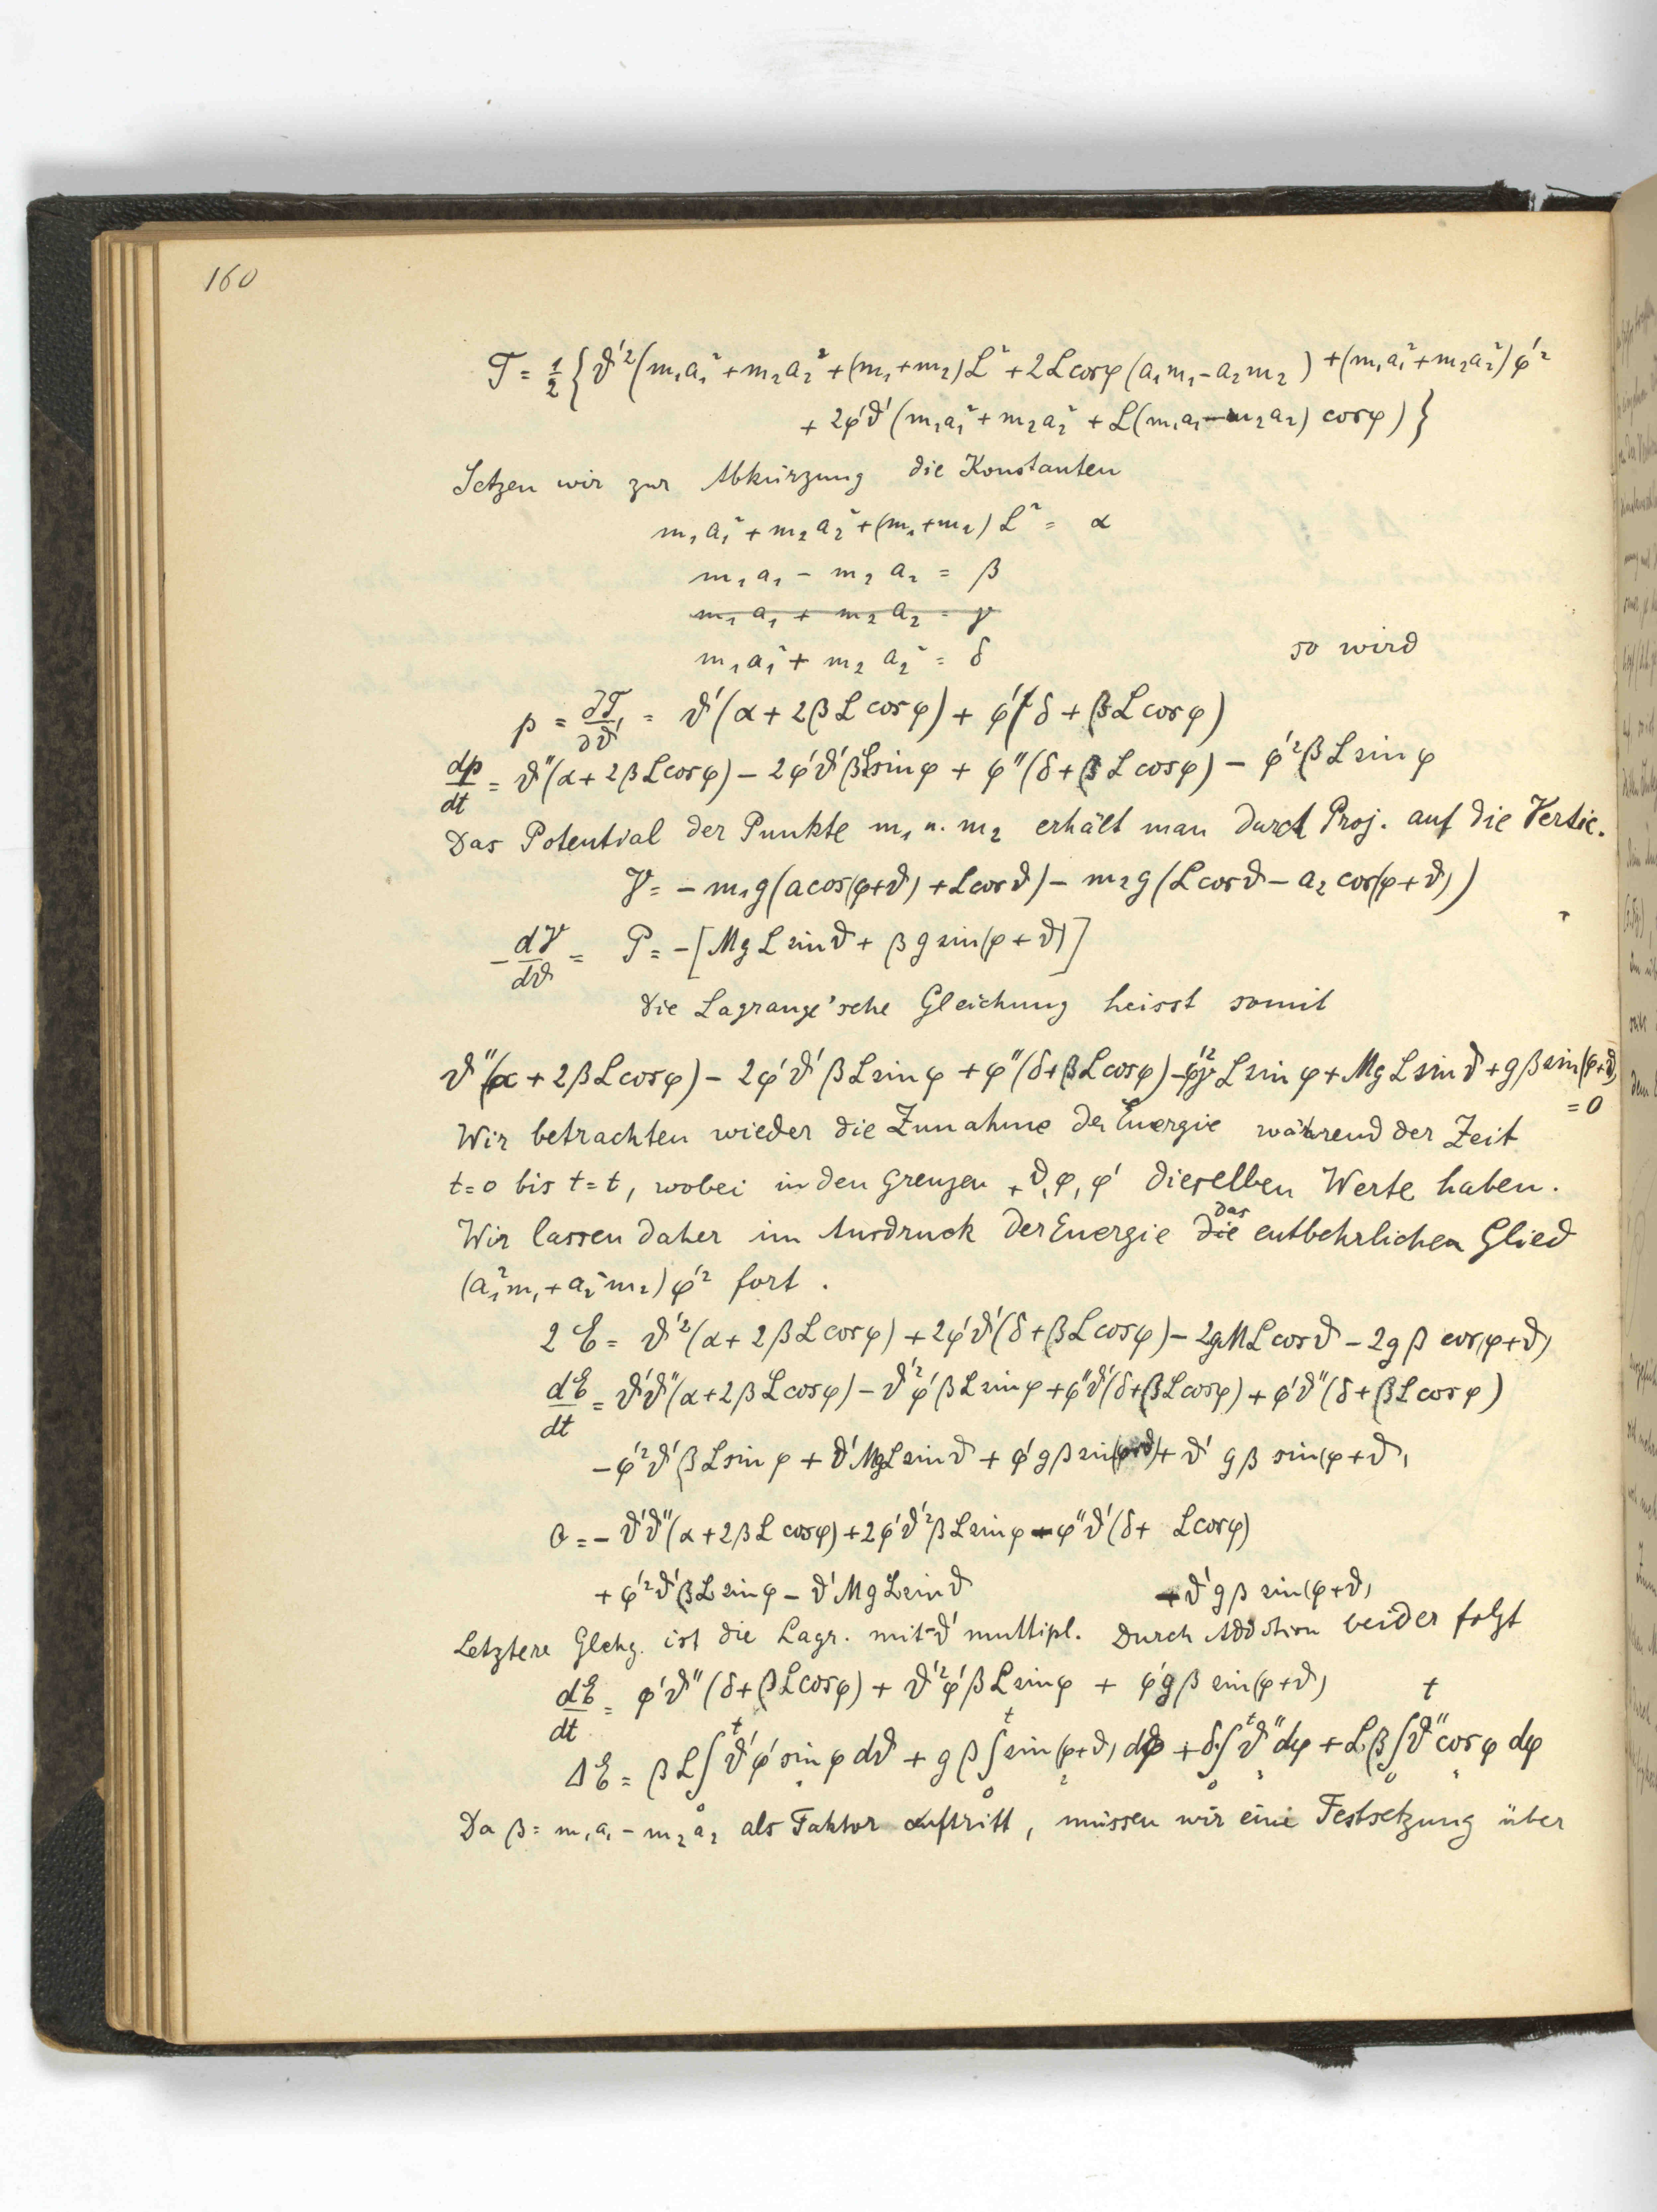 160
T = ½ { ϑ'² (m₁a₁² + m₂a₂² + (m₁+m₂)L² + 2L cos φ (a₁m₁ - a₂m₂) + (m₁a₁² + m₂a₂²) φ'²
+ 2φ'ϑ' (m₁a₁² + m₂a₂² + L(m₁a₁ - m₂a₂) cos φ) }
Setzen wir zur Abkürzung die Konstanten
m₁a₁² + m₂a₂² + (m₁+m₂) L² = α
m₁a₁ - m₂a₂ = β
m₁a₁ + m₂a₂ = γ
m₁a₁² + m₂a₂² = δ so wird
p = ∂T/∂ϑ' = ϑ'(α + 2βL cos φ) + φ'(δ + βL cos φ)
dp/dt = ϑ''(α + 2βL cos φ) - 2φ'ϑ'βL sin φ + φ''(δ + βL cos φ) - φ'²βL sin φ
Das Potential der Punkte m₁ u. m₂ erhält man durch Proj. auf die Vertic.
V = - m₁g(a cos(φ+ϑ) + L cos ϑ) - m₂g(L cos ϑ - a₂ cos(φ+ϑ))
- dV/dϑ = P = -[MgL sin ϑ + βg sin(φ+ϑ)]
Die Lagrange'sche Gleichung heisst somit
ϑ''(α + 2βL cos φ) - 2φ'ϑ'βL sin φ + φ''(δ + βL cos φ) - φ'²γL sin φ + MgL sin ϑ + gβ sin(φ+ϑ)
= 0
Wir betrachten wieder die Zunahme der Energie während der Zeit
t=0 bis t=t, wobei in den Grenzen ϑ, φ, φ' dieselben Werte haben.
Wir lassen daher im Ausdruck der Energie die das entbehrlichen Glied
(a₁²m₁ + a₂²m₂) φ'² fort.
2E = ϑ'²(α + 2βL cos φ) + 2φ'ϑ'(δ + βL cos φ) - 2gML cos ϑ - 2gβ cos(φ+ϑ)
dE/dt = ϑ'ϑ''(α + 2βL cos φ) - ϑ'²φ'βL sin φ + φ''ϑ'(δ + βL cos φ) + φ'ϑ''(δ + βL cos φ)
- φ'²ϑ'βL sin φ + ϑ'MgL sin ϑ + φ'gβ sin(φ+ϑ) + ϑ'gβ sin(φ+ϑ)
0 = - ϑ'ϑ''(α + 2βL cos φ) + 2φ'ϑ'²βL sin φ - φ''ϑ'(δ + L cos φ)
+ φ'²ϑ'βL sin φ - ϑ'MgL sin ϑ - ϑ'gβ sin(φ+ϑ)
Letztere Glchg. ist die Lagr. mit -ϑ' multipl. Durch Addition beider folgt
dE/dt = φ'ϑ''(δ + βL cos φ) + ϑ'²φ'βL sin φ + φ'gβ sin(φ+ϑ)
ΔE = βL ∫₀ᵗ ϑ'φ' sin φ dϑ + gβ ∫₀ᵗ sin(φ+ϑ) dφ + δ ∫₀ᵗ ϑ'' dφ + Lβ ∫₀ᵗ ϑ'' cos φ dφ
Da β = m₁a₁ - m₂a₂ als Faktor auftritt, müssen wir eine Festsetzung über